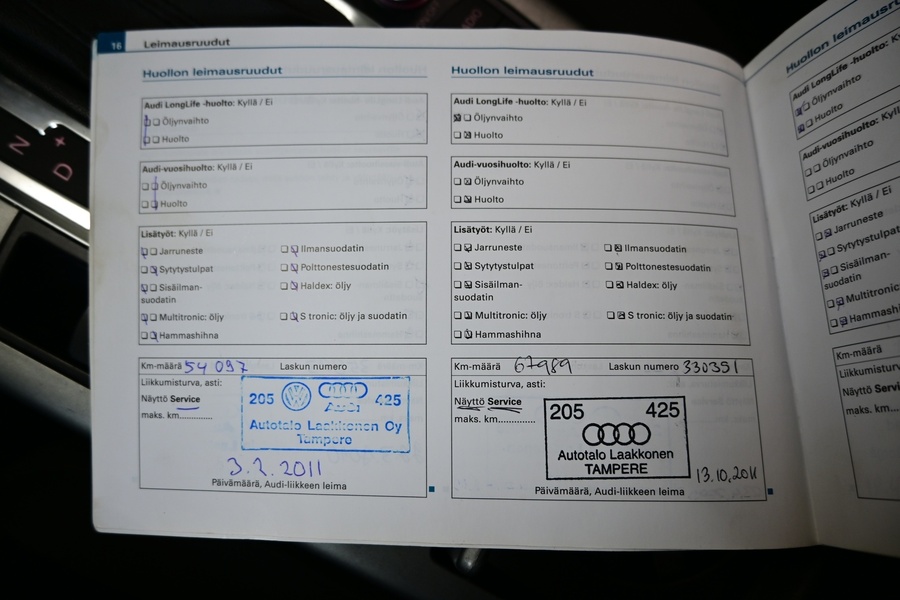 16 Leimausruudut
Huollon leimausruudut
Audi LongLife -huolto: Kyllä / Ei
Öljynvaihto
Huolto
Audi-vuosihuolto: Kyllä / Ei
Öljynvaihto
Huolto
Lisätyöt: Kyllä / Ei
Jarruneste
Ilmansuodatin
Sytytystulpat
Polttonestesuodatin
Sisäilman-
suodatin
Haldex: öljy
Multitronic: öljy
S tronic: öljy ja suodatin
Hammashihna
Km-määrä 54 097 Laskun numero
Liikkumisturva, asti:
Näyttö Service
maks. km..............
205 Audi 425
Autotalo Laakkonen Oy
Tampere
3.2.2011
Päivämäärä, Audi-liikkeen leima
Huollon leimausruudut
Audi LongLife -huolto: Kyllä / Ei
Öljynvaihto
Huolto
Audi-vuosihuolto: Kyllä / Ei
Öljynvaihto
Huolto
Lisätyöt: Kyllä / Ei
Jarruneste
Ilmansuodatin
Sytytystulpat
Polttonestesuodatin
Sisäilman-
suodatin
Haldex: öljy
Multitronic: öljy
S tronic: öljy ja suodatin
Hammashihna
Km-määrä 67989 Laskun numero 330351
Liikkumisturva, asti:
Näyttö Service
maks. km..............
205 425
Autotalo Laakkonen
TAMPERE
13.10.2011
Päivämäärä, Audi-liikkeen leima
Huollon leimausruudut
Audi LongLife -huolto:
Öljynvaihto
Huolto
Audi-vuosihuolto:
Öljynvaihto
Huolto
Lisätyöt: Kyllä / Ei
Jarruneste
Sytytystulpat
Sisäilman-
suodatin
Multitronic:
Km-määrä
Näyttö
maks. km
N
D
+